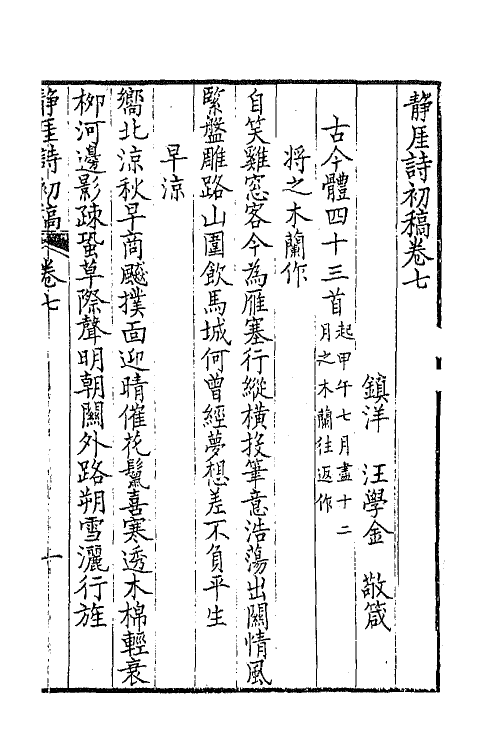 静厓詩初稿卷七
鎮洋　汪學金　敬箴
古今體四十三首起甲午七月盡十二月之木蘭往返作
將之木蘭作
自笑雞窓客今為雁塞行縱橫投筆意浩蕩出關情風
緊盤雕路山圍飲馬城何曾經夢想差不負平生
早涼
嚮北涼秋早商飈撲面迎晴催花鬘喜寒透木棉輕衰
栁河邊影疎蛩草際聲明朝關外路朔雪灑行旌
静厓詩初稿　卷七　一